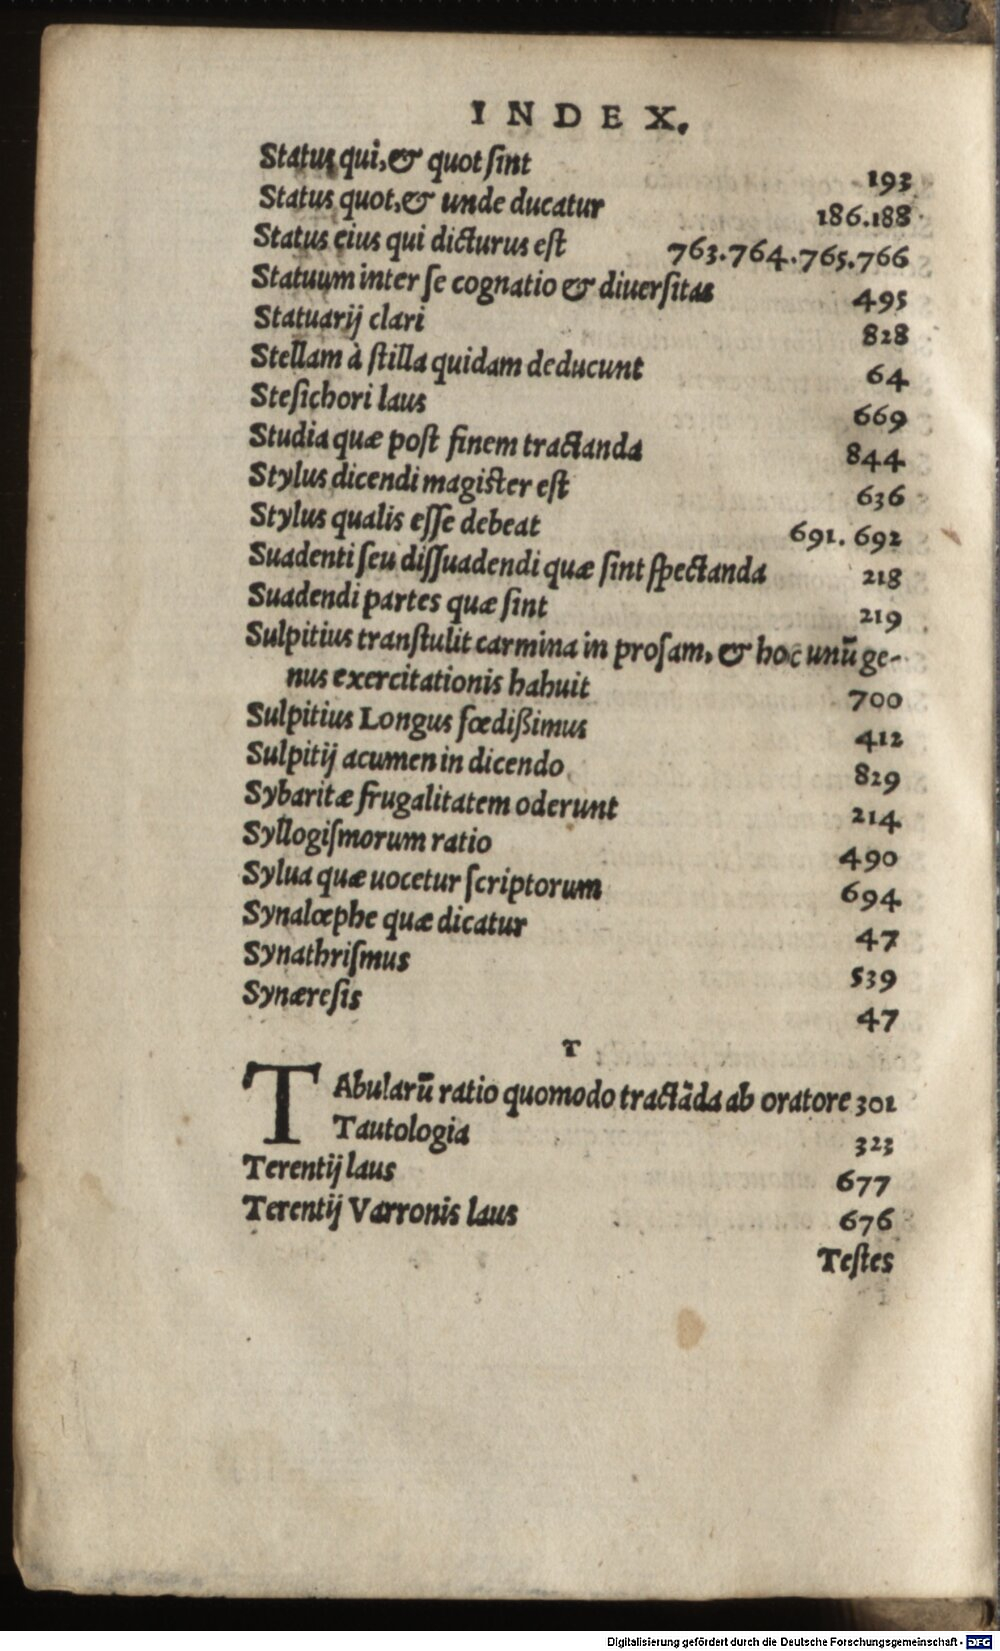 INDEX.
Status qui, & quot sint 193
Status quot, & unde ducatur 186.188
Status eius qui dicturus est 763.764.765.766
Statuum inter se cognatio & diuersitas 495
Statuarij clari 828
Stellam à stilla quidam deducunt 64
Stesichori laus 669
Studia quæ post finem tractanda 844
Stylus dicendi magister est 636
Stylus qualis esse debeat 691. 692
Suadenti seu dissuadendi quæ sint spectanda 218
Suadendi partes quæ sint 219
Sulpitius transtulit carmina in prosam, & hoc unū ge-
nus exercitationis habuit 700
Sulpitius Longus fœdißimus 412
Sulpitij acumen in dicendo 829
Sybaritæ frugalitatem oderunt 214
Syllogismorum ratio 490
Sylua quæ uocetur scriptorum 694
Synalœphe quæ dicatur 47
Synathrismus 539
Synæresis 47
T
TAbularū ratio quomodo tractāda ab oratore 301
Tautologia 323
Terentij laus 677
Terentij Varronis laus 676
Testes
Digitalisierung gefördert durch die Deutsche Forschungsgemeinschaft - DFG